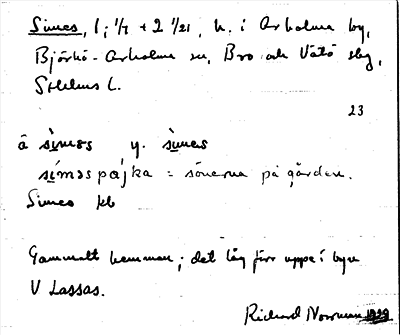 Simes, 1; 1/7 + 2 1/21, h. i Arholma by,
Björkö-Arholma sn, Bro och Vätö skg,
Sthlms L.
23
å sìməs y. sìməs
síməspåjka = sönerna på gården.
Simes kb
Gammalt hemman; det låg förr uppe i byn
V Lassas.
Richard Norrman 1929